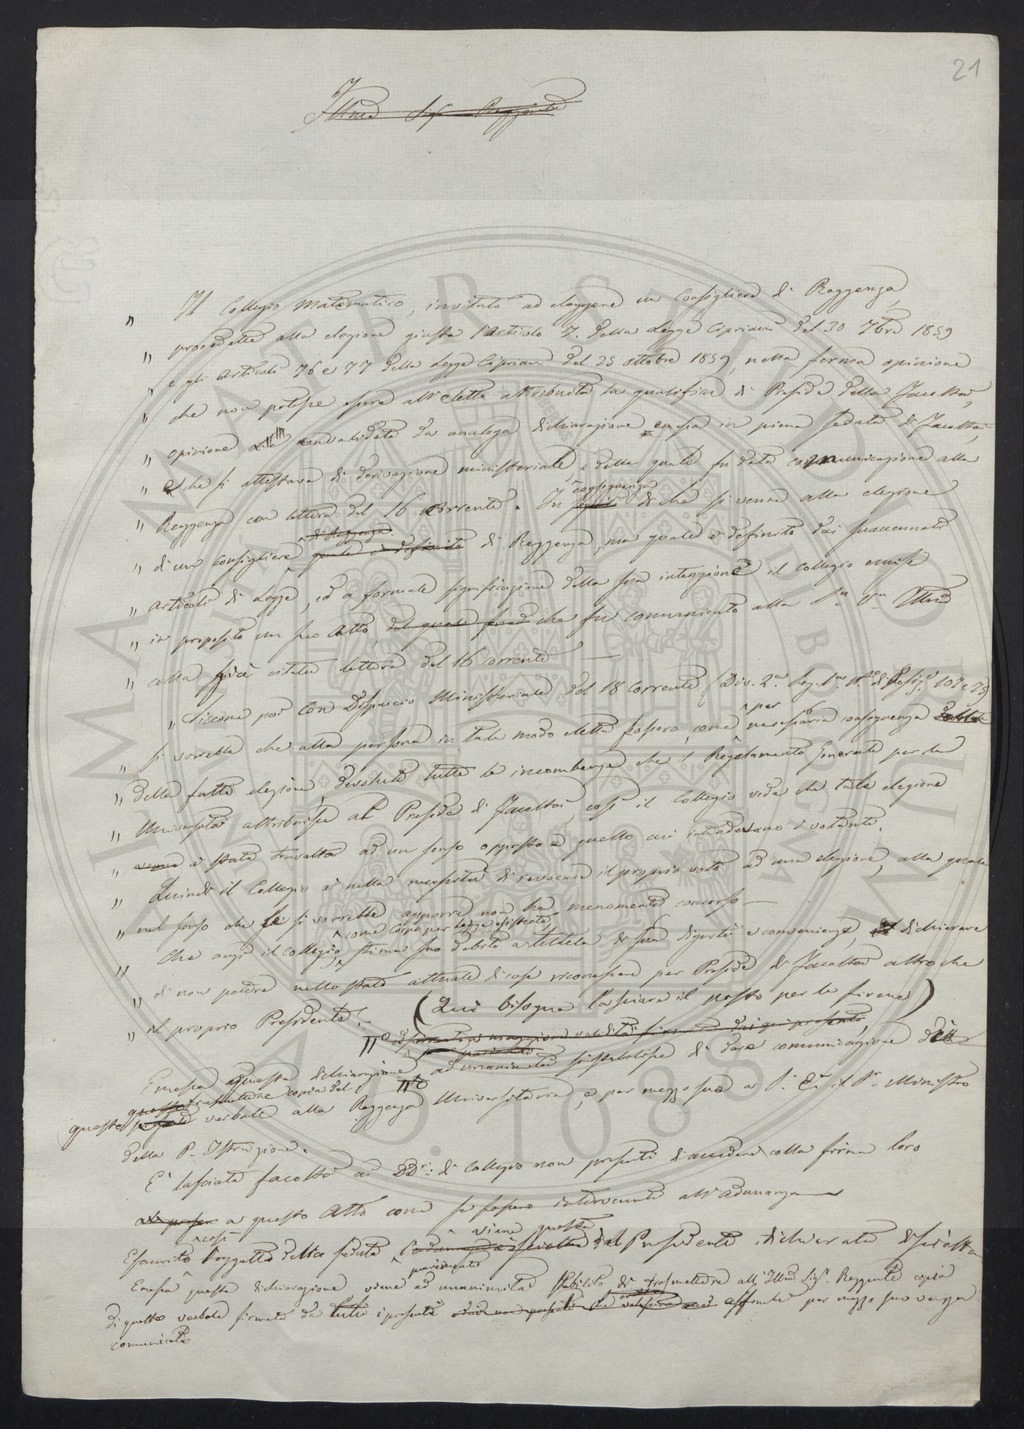 21
Illmo Sig Reggente
" Il Collegio Matematico, invitato ad eleggere un Consigliere di Reggenza,
" procedette alla elezione giusta l'articolo 7. della Legge Cipriani del 30 7bre 1859
" e gli articoli 76 e 77 della Legge Cipriani del 25 ottobre 1859, nella ferma opinione
" che non potesse essere all'eletto attribuita la qualifica di Preside della Facoltà,
" opinione convalidata da analoga dichiarazione emessa in piena seduta di Facoltà,
" che si attestava di derivazione ministeriale e della quale fu data comunicazione alla
" Reggenza con lettera del 16 corrente. In conseguenza di che si venne alla elezione
" di un Consigliere di Reggenza quale è definito dai suaccennati
" articoli di Legge, ed a formale significazione della sua intenzione il collegio emise
" in proposito un suo Atto del quale che fu comunicato alla S.a V.a Illma
" colla già citata lettera del 16 corrente. —
" Siccome poi con Dispaccio Ministeriale del 18 corrente (Div. 2.a
" si vorrebbe che alla persona in tale modo eletta fossero, come per necessaria conseguenza
" della fatta elezione devolute tutte le incombenze che il Regolamento Generale per le
" Università attribuisce al Preside di Facoltà, così il Collegio vede che tale elezione
" è stata travolta ad un senso opposto a quello cui intendevano i votanti.
" Quindi il Collegio è nella necessità di revocare il proprio voto ad una elezione, alla quale
" nel senso che le si vorrebbe apporre non ha menomamente concorso —
" Che anzi il collegio, come Corpo per legge esistente, stima suo debito a tutela di sua dignità e convenienza, di dichiarare
" di non potere nello stato attuale di cose riconoscere per Preside di Facoltà altro che
" il proprio Presidente. (Qui bisogna lasciare il posto per le firme)
Emessa questa dichiarazione ad unanimità si stabilisce di dare comunicazione
questo verbale alla Reggenza Universitaria, e per mezzo suo a S. E. il S.r Ministro
della P. Istruzione.
È lasciata facoltà ai DD.i di Collegio non presenti d'accedere colla firma loro
a questo Atto come se fossero intervenuti all'adunanza
Esaurito così l'oggetto della seduta viene questa dal Presidente dichiarata disciolta
Emessa questa dichiarazione viene ad unanimità stabilito di trasmettere all'Illmo Sig.r Reggente copia
di questo verbale firmato da tutti i presenti affinché per mezzo suo venga
comunicata